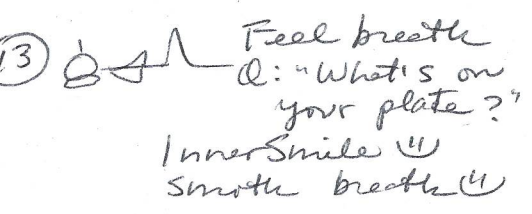 13 Feel breath
Q: "What's on
your plate?"
Inner Smile
Smooth breath